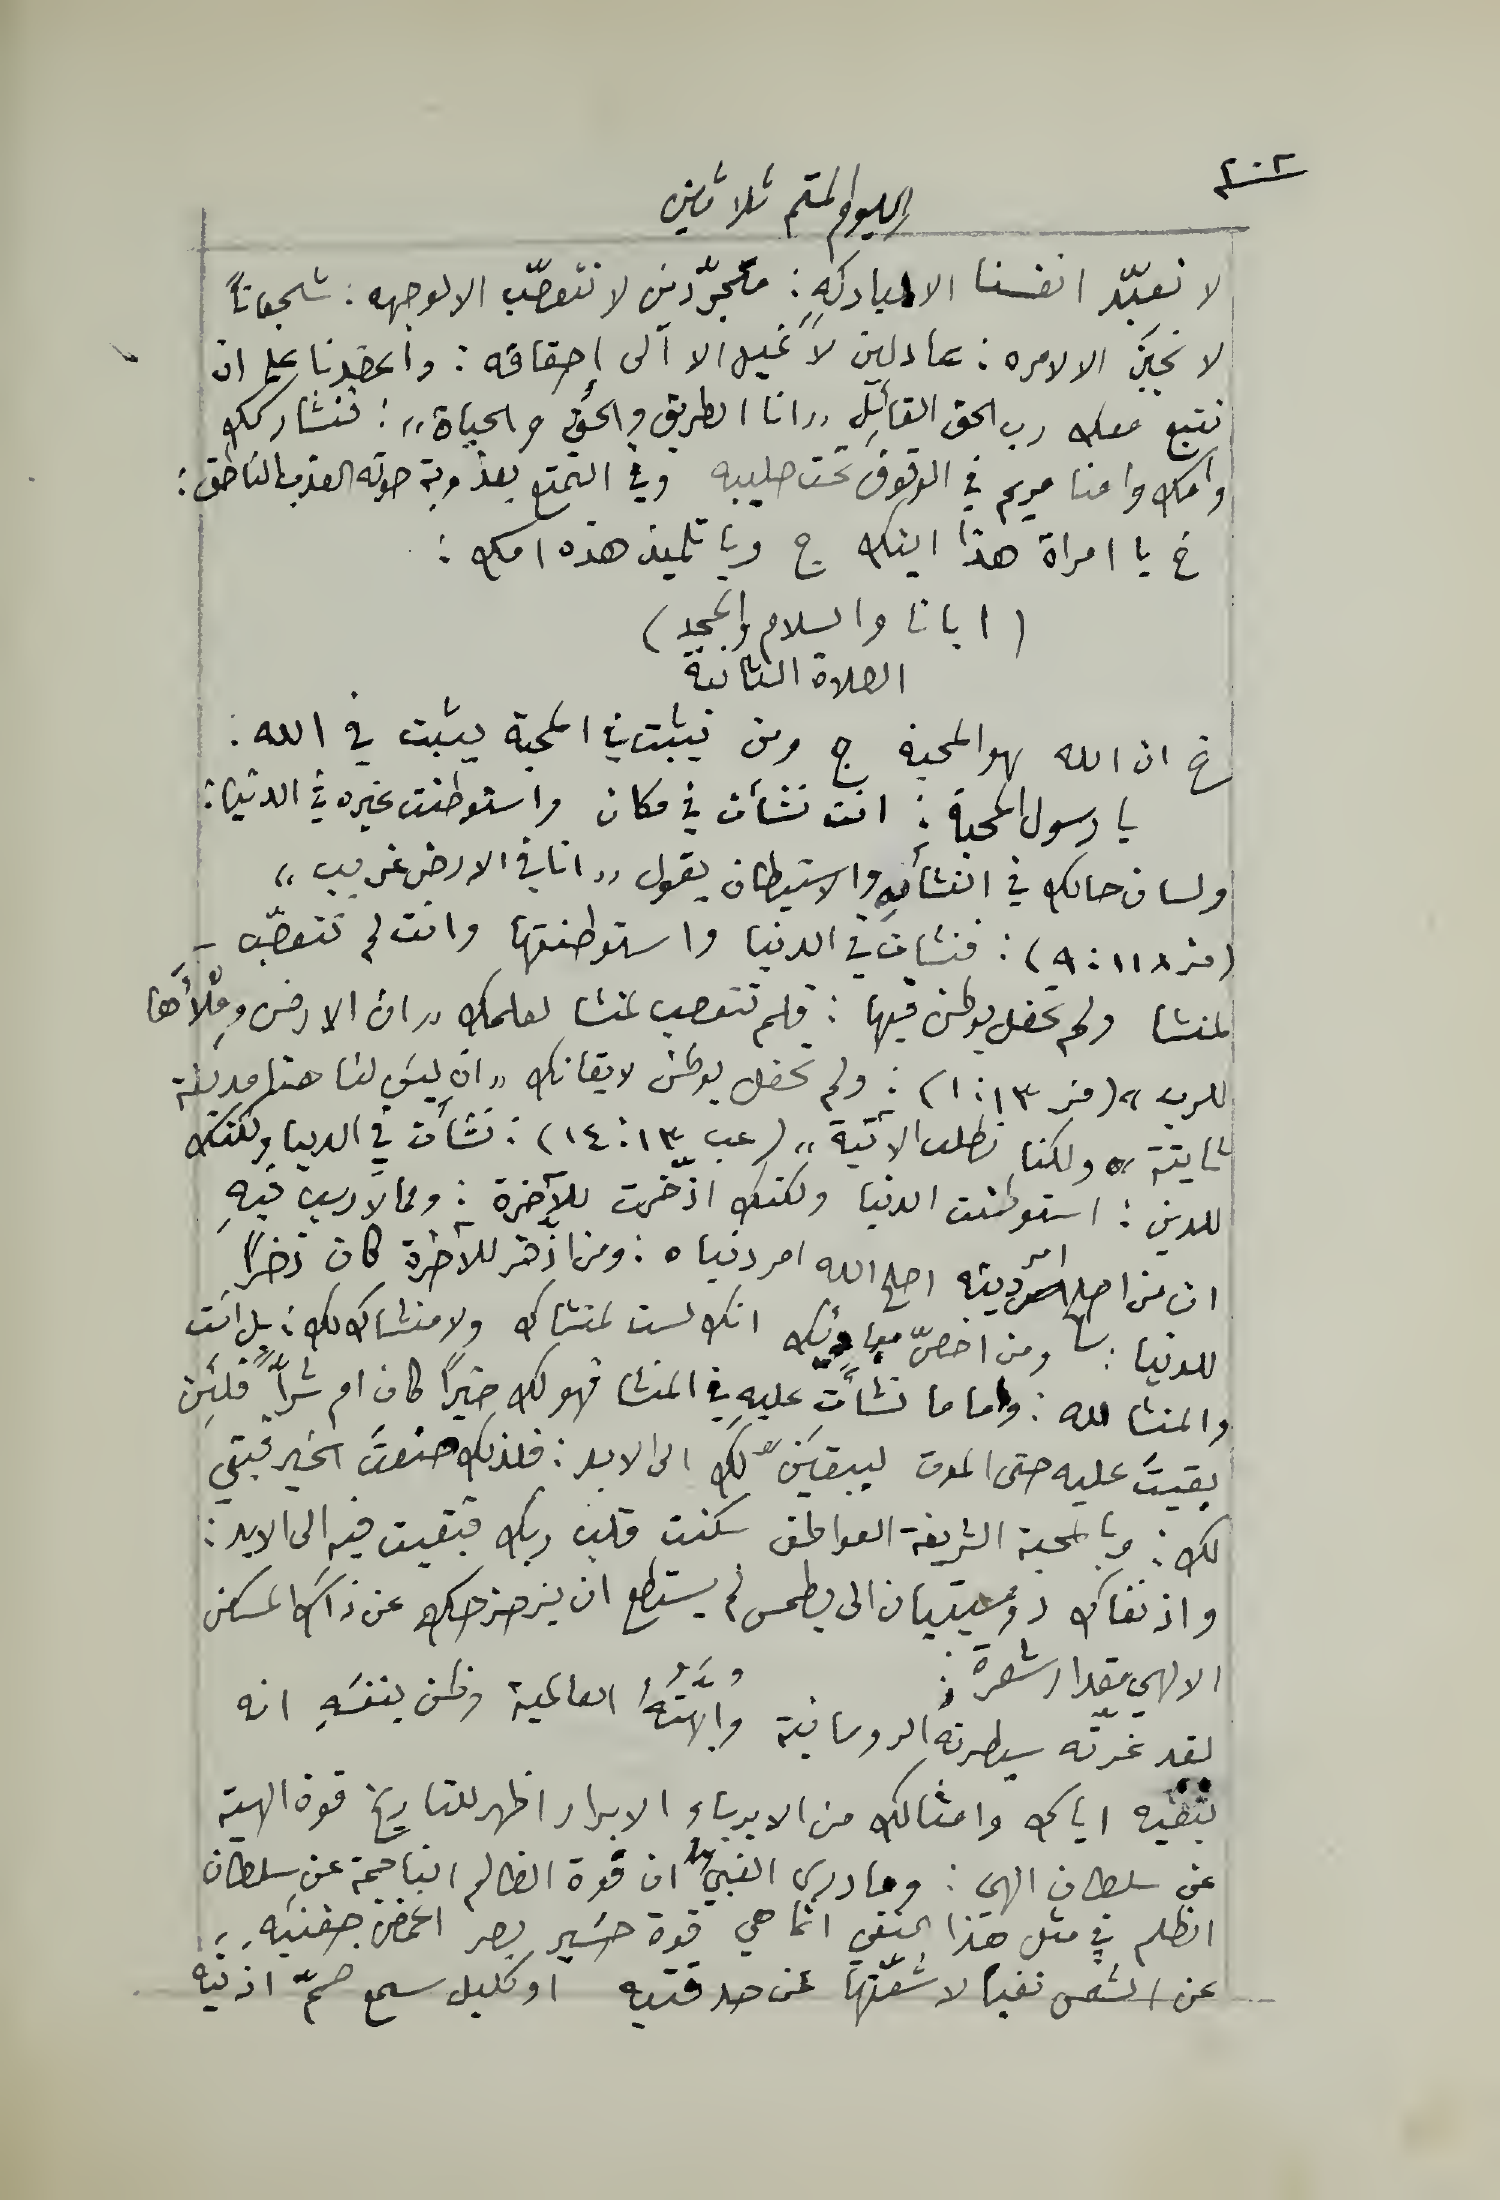 ٢٠٢
اليوم المتمم ثلاثين
لا نعبّد انفسنا الا لمباركهِ : متجرّدين لا نتعصّب الا لوجهه : شجعاناً
لا نجبن الا لامره : عادلين لا نميل الا الى احقاقه : واعضدنا على ان
نتبع معك رب الحق القائل „ انا الطريق والحق والحياة „ : فنشاركك
وامك وامنا مريم في الوقوف تحت صليبه وفي التمتع بعذوبة صوته العذب الناطق :
خ يا امراة هذا ابنك ج ويا تلميذ هذه امك :
( ابانا والسلام والمجد )
الصلاة الثانية
خ ان الله هو المحبة ج ومن يثبت في المحبة يثبت في الله :
يا رسول المحبة : انت نشأت في مكان واستوطنت غيره في الدنيا :
ولسان حالك في النشأة والاستيطان يقول „ انا في الارض غريب „
(مز ١١٨ : ٩) : فنشات في الدنيا واستوطنتها وانت لم تتعصّب –
لمنشا ولم تحفل بوطن فيها : فلم تتعصب لمنشا لعلمك „ ان الارض وملأها
للرب „ (مز ١٣ : ١) : ولم تحفل بوطن لايقانك „ ان ليس لنا هنا مدينة
ثابتة „ ولكنا نطلب الآتية „ (عب ١٣ : ١٤) : نشأت في الدنيا ولكنك
للدين : استوطنت الدنيا ولكنك ادّخرت للآخرة : ومما لا ريب فيهِ
ان من اصلح امر دينه اصلح الله امر دنياه : ومن ادّخر للآخرة كان ذخراً
للدنيا : ومن اخصّ انك لست لمنشاك ولا منشاك لك : بل انت
والمنشا لله : واما ما نشأت عليهِ في المنشا فهو لك خيراً كان ام شراً فلئن
بقيتَ عليه حتى الموت ليبقينّ لك الى الابد : فلذلك صنعتَ الخير فبقي
لك : وبالمحبة الشريفة العواطف سكنت قلب ربك فبقيت فيه الى الابد :
واذ نفاك دومسيتيان الى بطمس لم يستطع ان يزحزحك عن ذاك المسكن
الالهي مقدار شعرة :
لقد غرّته سيطرتهُ الرومانية وأبّهتهُ العالمية وظن بنفسهِ انه
بنفيه اياك وامثالك من الابرياء الابرار اظهر للتاريخ قوة الهية
عن سلطان الهي : وما درى الغبي ان قوة الظالم الناجمة عن سلطان
الظلم في مثل هذا النفي انما هي قوة حسير بصر اغمض جفنيه
عن الشمس نفياً لاشعّتها عن حدقتيه او كليل سمع صمّ اذنيه